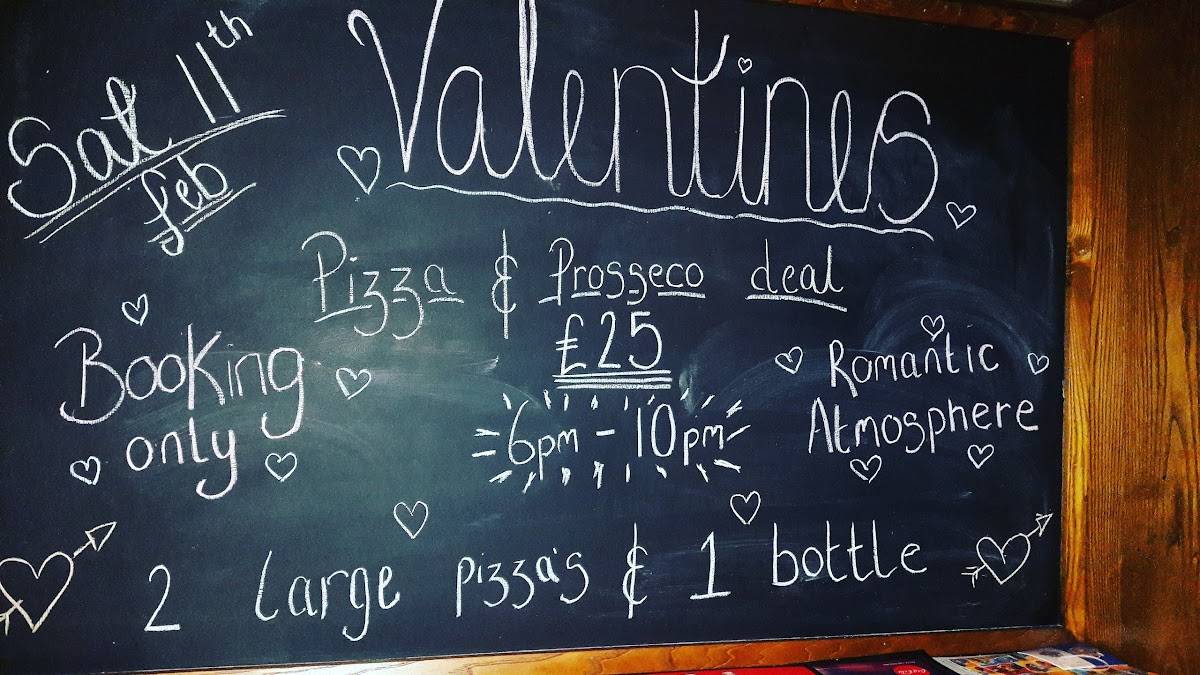 Sat 11th
feb
Valentines
Pizza & Prosseco deal
£25
6pm - 10pm
Booking
only
Romantic
Atmosphere
2 large pizza's & 1 bottle